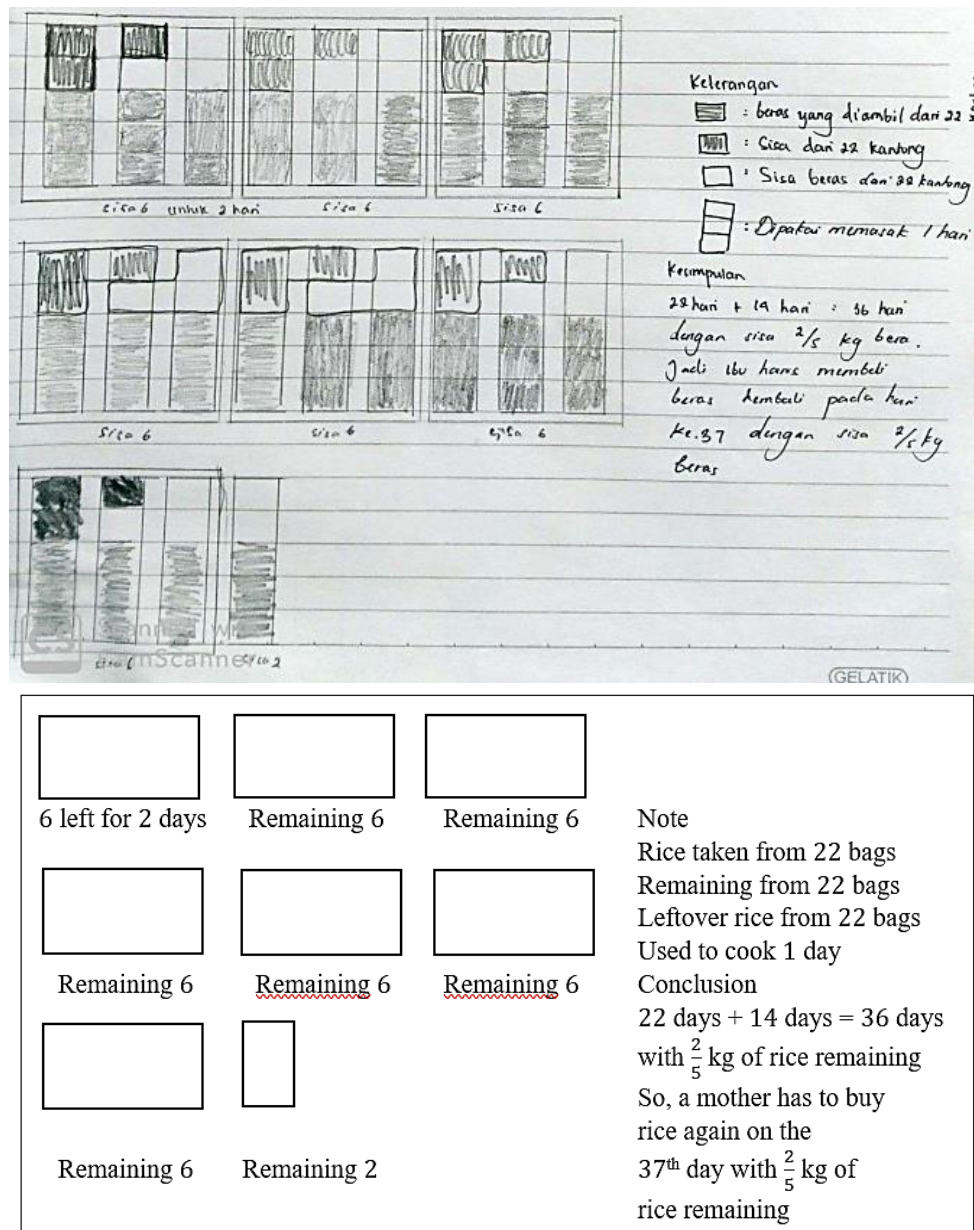 sisa 6 untuk 2 hari
sisa 6
sisa 6
Keterangan
: beras yang diambil dari 22
: Sisa dari 22 kantong
: Sisa beras dari 22 kantong
: Dipakai memasak 1 hari
sisa 6
sisa 6
sisa 6
Kesimpulan
22 hari + 14 hari : 36 hari
dengan sisa 2/5 kg bera.
Jadi ibu harus membeli
beras kembali pada hari
Ke.37 dengan sisa 2/5 kg
beras
sisa 6
sisa 2
CS
GELATIK
6 left for 2 days
Remaining 6
Remaining 6
Remaining 6
Remaining 6
Remaining 6
Remaining 6
Remaining 2
Note
Rice taken from 22 bags
Remaining from 22 bags
Leftover rice from 22 bags
Used to cook 1 day
Conclusion
22 days + 14 days = 36 days
with 2/5 kg of rice remaining
So, a mother has to buy
rice again on the
37th day with 2/5 kg of
rice remaining